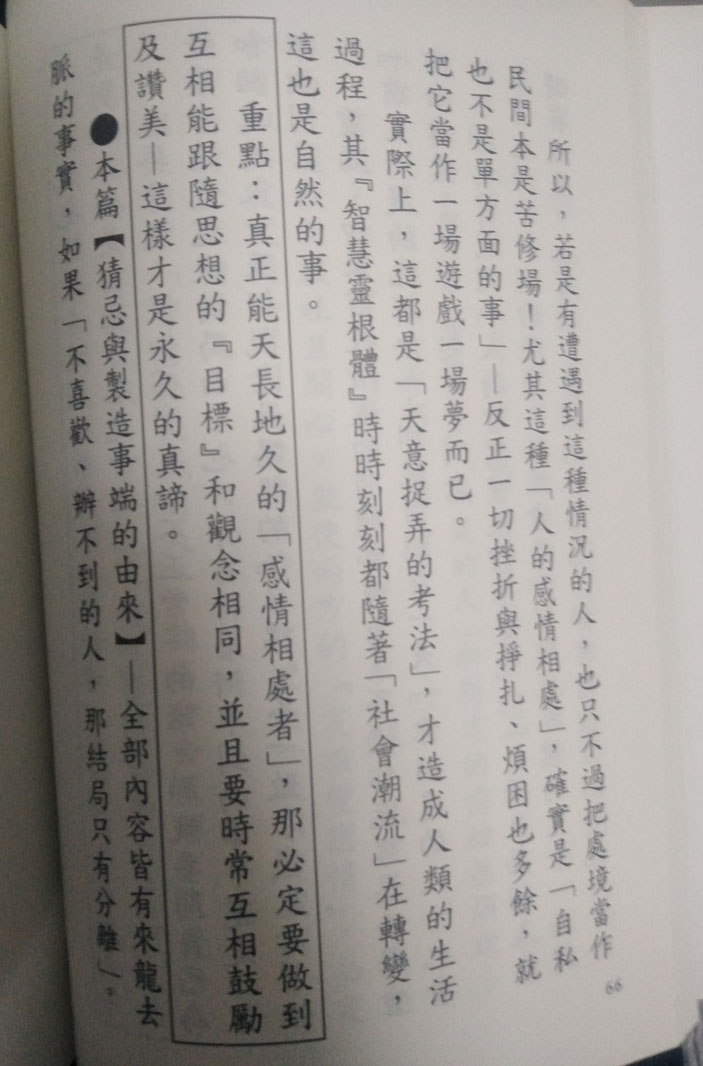 所以，若是有遭遇到這種情況的人，也只不過把處境當作
民間本是苦修場！尤其這種「人的感情相處」，確實是「自私
也不是單方面的事」—反正一切挫折與掙扎、煩困也多餘，就
把它當作一場遊戲一場夢而已。
實際上，這都是「天意捉弄的考法」，才造成人類的生活
過程，其『智慧靈根體』時時刻刻都隨著「社會潮流」在轉變，
這也是自然的事。
重點：真正能天長地久的「感情相處者」，那必定要做到
互相能跟隨思想的『目標』和觀念相同，並且要時常互相鼓勵
及讚美—這樣才是永久的真諦。
●本篇【猜忌與製造事端的由來】—全部內容皆有來龍去
脈的事實，如果「不喜歡、辦不到的人，那結局只有分離」。
66